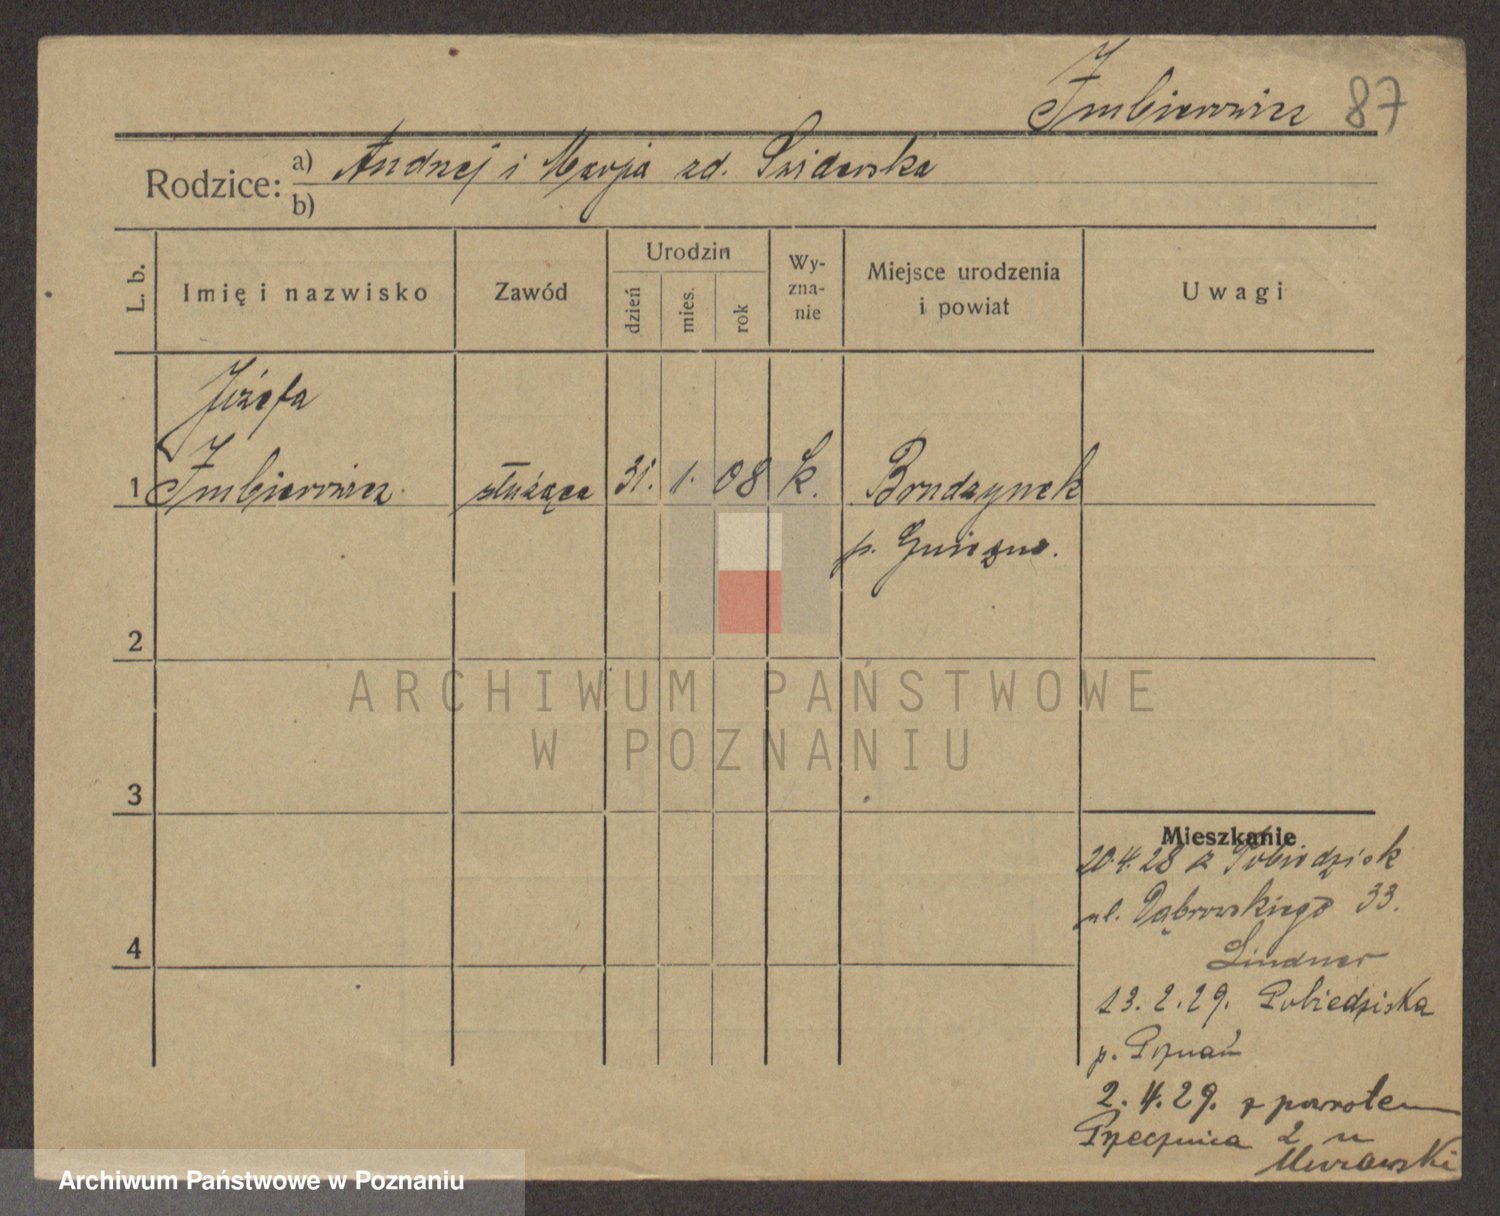 Imbierowicz 87
Rodzice: a) Andrzej i Marja zd. Swiderska
b)
L. b.
Imię i nazwisko
Zawód
Urodzin
dzień
mies.
rok
Wy-
zna-
nie
Miejsce urodzenia
i powiat
Uwagi
Józefa
1 Imbierowicz służąca 31. 1. 08 k. Brudzynek
p. Gniezno.
2
3
4
ARCHIWUM PAŃSTWOWE
W POZNANIU
Mieszkanie
20.4.28 z Pobiedzisk
ul. Dąbrowskiego 33.
Lindner
13.2.29. Pobiedziska
p. Poznań
2.4.29. z powrotem
Przecznica 2 u
Murawski
Archiwum Państwowe w Poznaniu